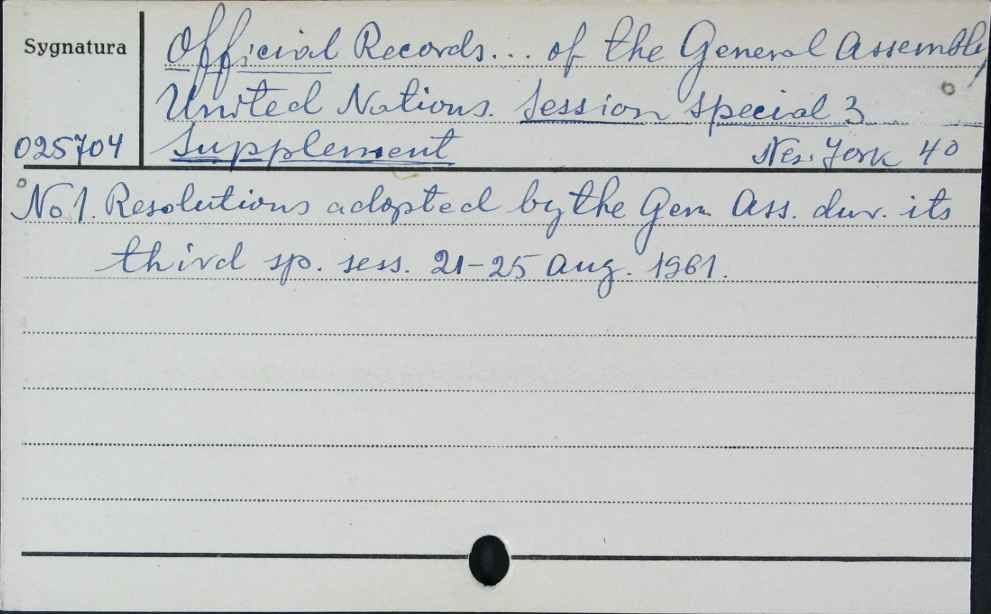 Sygnatura
025704
Official Records... of the General Assembly
United Nations. Session special 3
Supplement New York 40
No 1. Resolutions adopted by the Gen. Ass. dur. its
third sp. sess. 21-25 Aug. 1961.